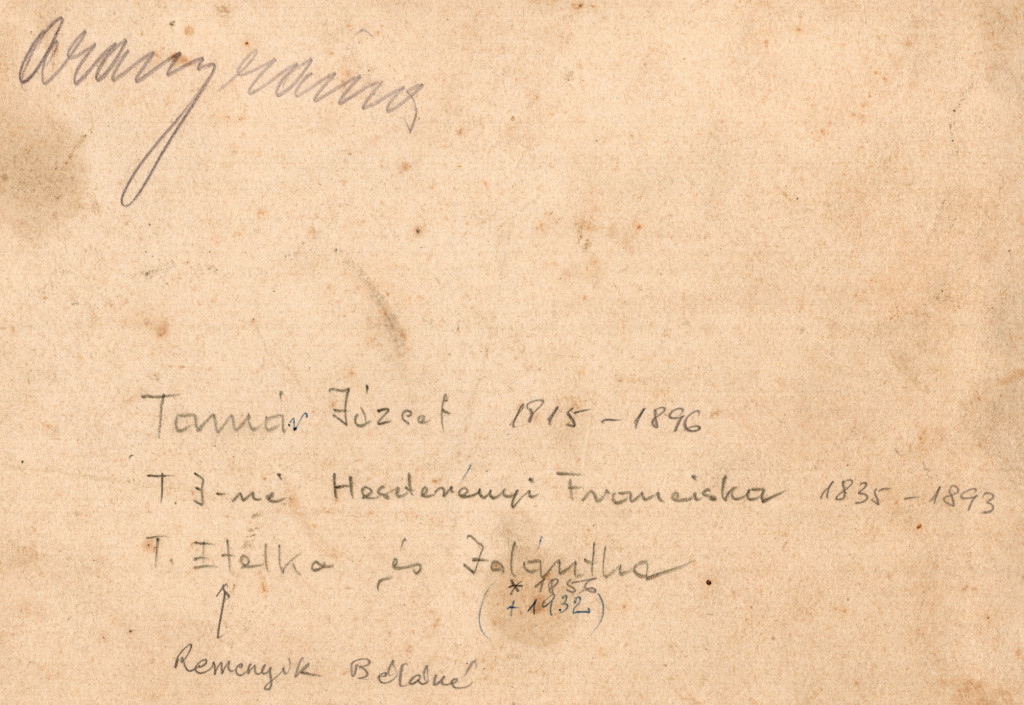 Aranyráma
Tamár József 1815 - 1896
T. J-né Hesderényi Franciska 1835 - 1893
T. Etelka és Jolántha
* 1856
( + 1932 )
Remenyik Béláné